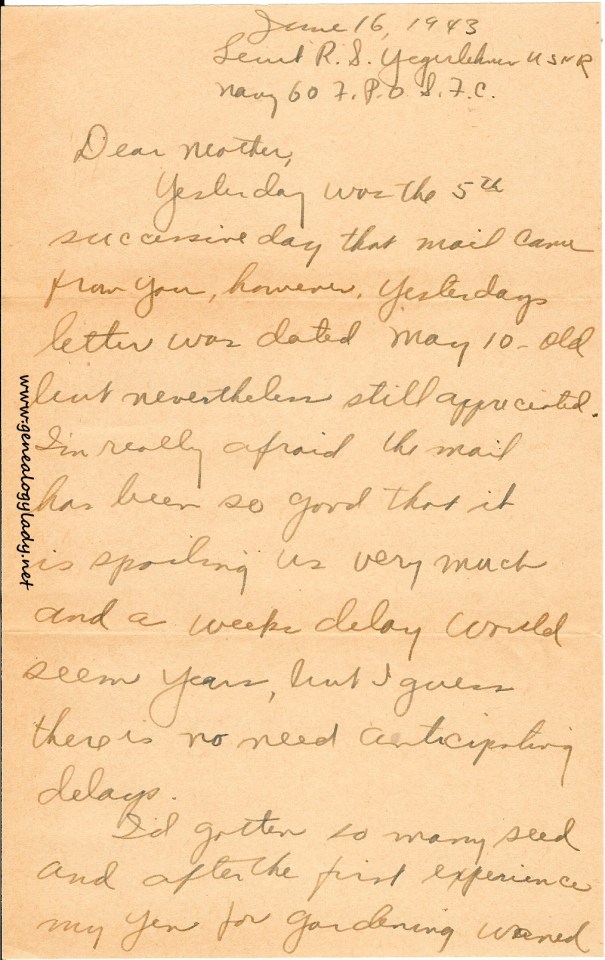 June 16, 1943
Lieut R. S. Yegerlehner USNR
Navy 60 F.P.O S.F.C.
Dear Mother,
Yesterday was the 5th
successive day that mail came
from you, however, yesterdays
letter was dated May 10 - old
but nevertheless still appreciated.
I'm really afraid the mail
has been so good that it
is spoiling us very much
and a weeks delay would
seem years, but I guess
there is no need anticipating
delays.
I'd gotten so many seed
and after the first experience
my yen for gardening waned
www.genealogylady.net